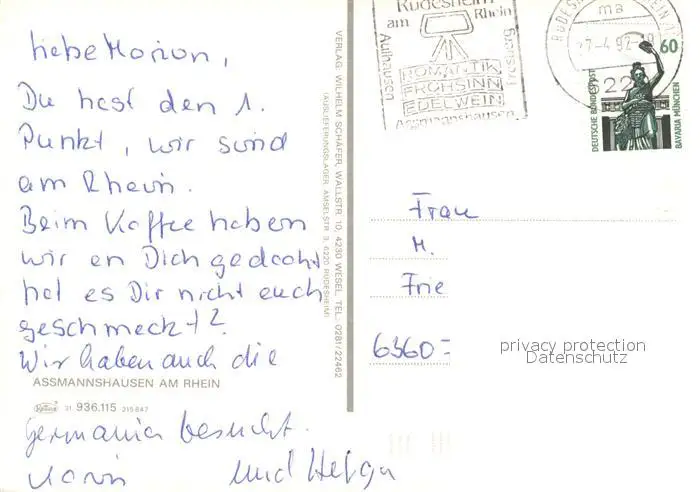 liebe Marion,
Du hast den 1.
Punkt, wir sind
am Rhein.
Beim Kaffee haben
wir an Dich gedacht
hat es Dir nicht auch
geschmeckt?
Wir haben auch die
ASSMANNSHAUSEN AM RHEIN
31. 936.115 215 847
Germania besucht.
Karin und Helga
VERLAG: WILHELM SCHÄFER, WALLSTR. 10, 4230 WESEL, TEL. 0281/22462
(AUSLIEFERUNGSLAGER: AMSELSTR. 3, 6220 RÜDESHEIM)
Rüdesheim
am Rhein
Aulhausen
Presberg
ROMANTIK
FROHSINN
EDELWEIN
Assmannshausen
ma
-7.-4.92-18
622
60
DEUTSCHE BUNDESPOST
BAVARIA MÜNCHEN
Frau
M.
Frie
6360-
privacy protection
Datenschutz